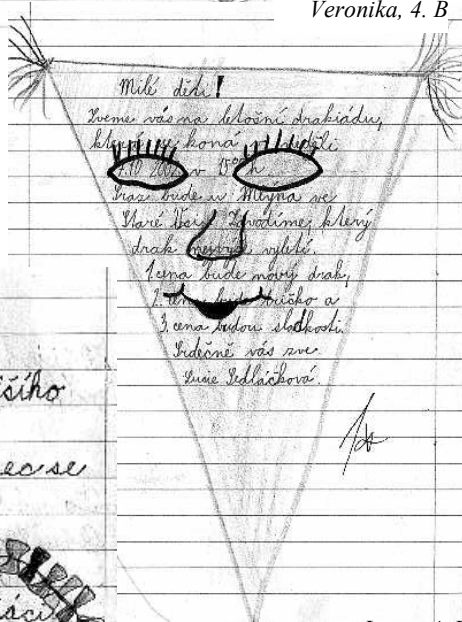 Veronika, 4. B
Milé děti!
Zveme vás na letošní drakiádu,
která se koná v neděli
v 15 h
Sraz bude u Mlýna ve
Staré Vsi. Zavodíme, který
drak nejvýš vyletí.
1. cena bude nový drak,
2. cena bude tričko a
3. cena budou sladkosti.
Srdečně vás zve
Lucie Sedláčková.
šího
ec se